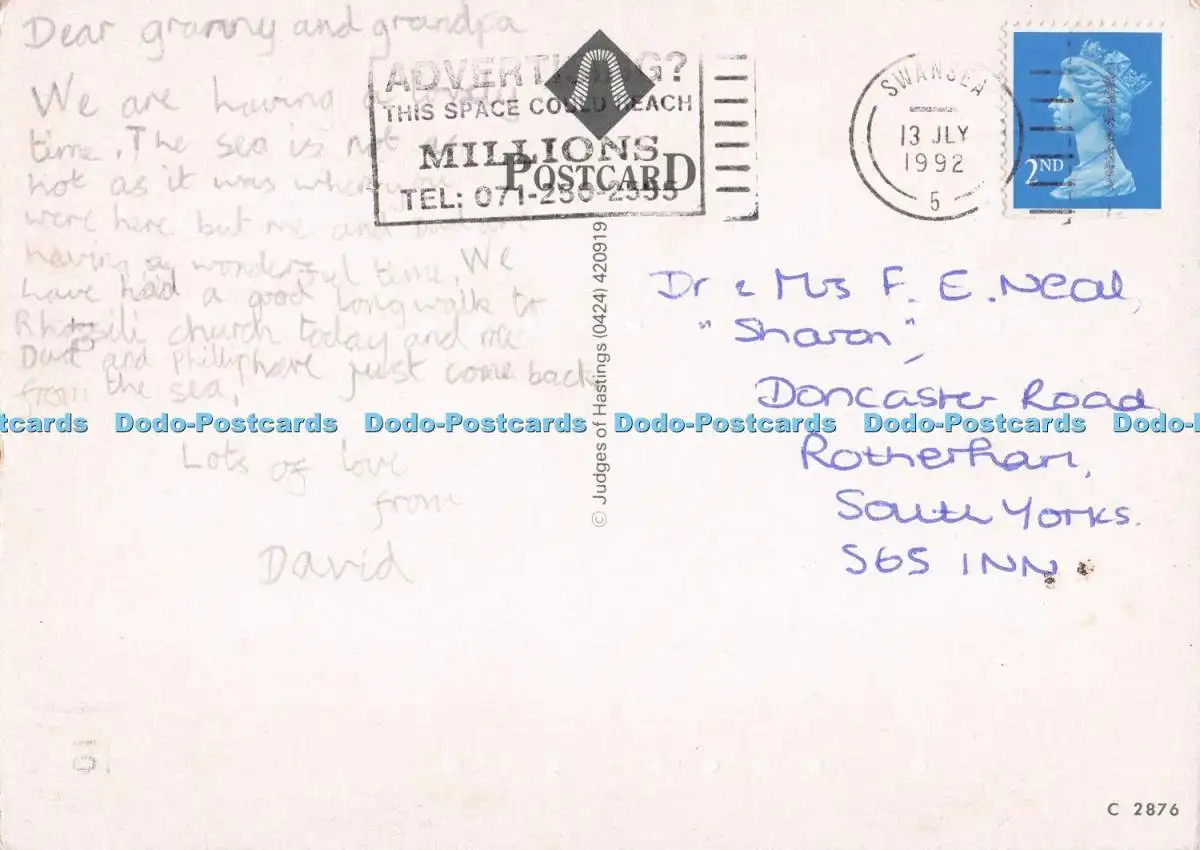 Dear granny and grandpa
We are having a
time. The sea is not as
hot as it was when
were here but me and are
having a wonderful time. We
have had a good long walk to
Rhosili church today and me
and have just come back
from the sea.
Lots of love
from
David
ADVERTISING?
THIS SPACE COULD REACH
MILLIONS
TEL: 071-250-2555
POSTCARD
© Judges of Hastings (0424) 420919
SWANSEA
13 JLY
1992
5
2ND
Dr & Mrs F. E. Neal,
"Sharon",
Doncaster Road
Rotherham,
South Yorks.
S65 1NN
Dodo-Postcards Dodo-Postcards Dodo-Postcards Dodo-Postcards
C 2876